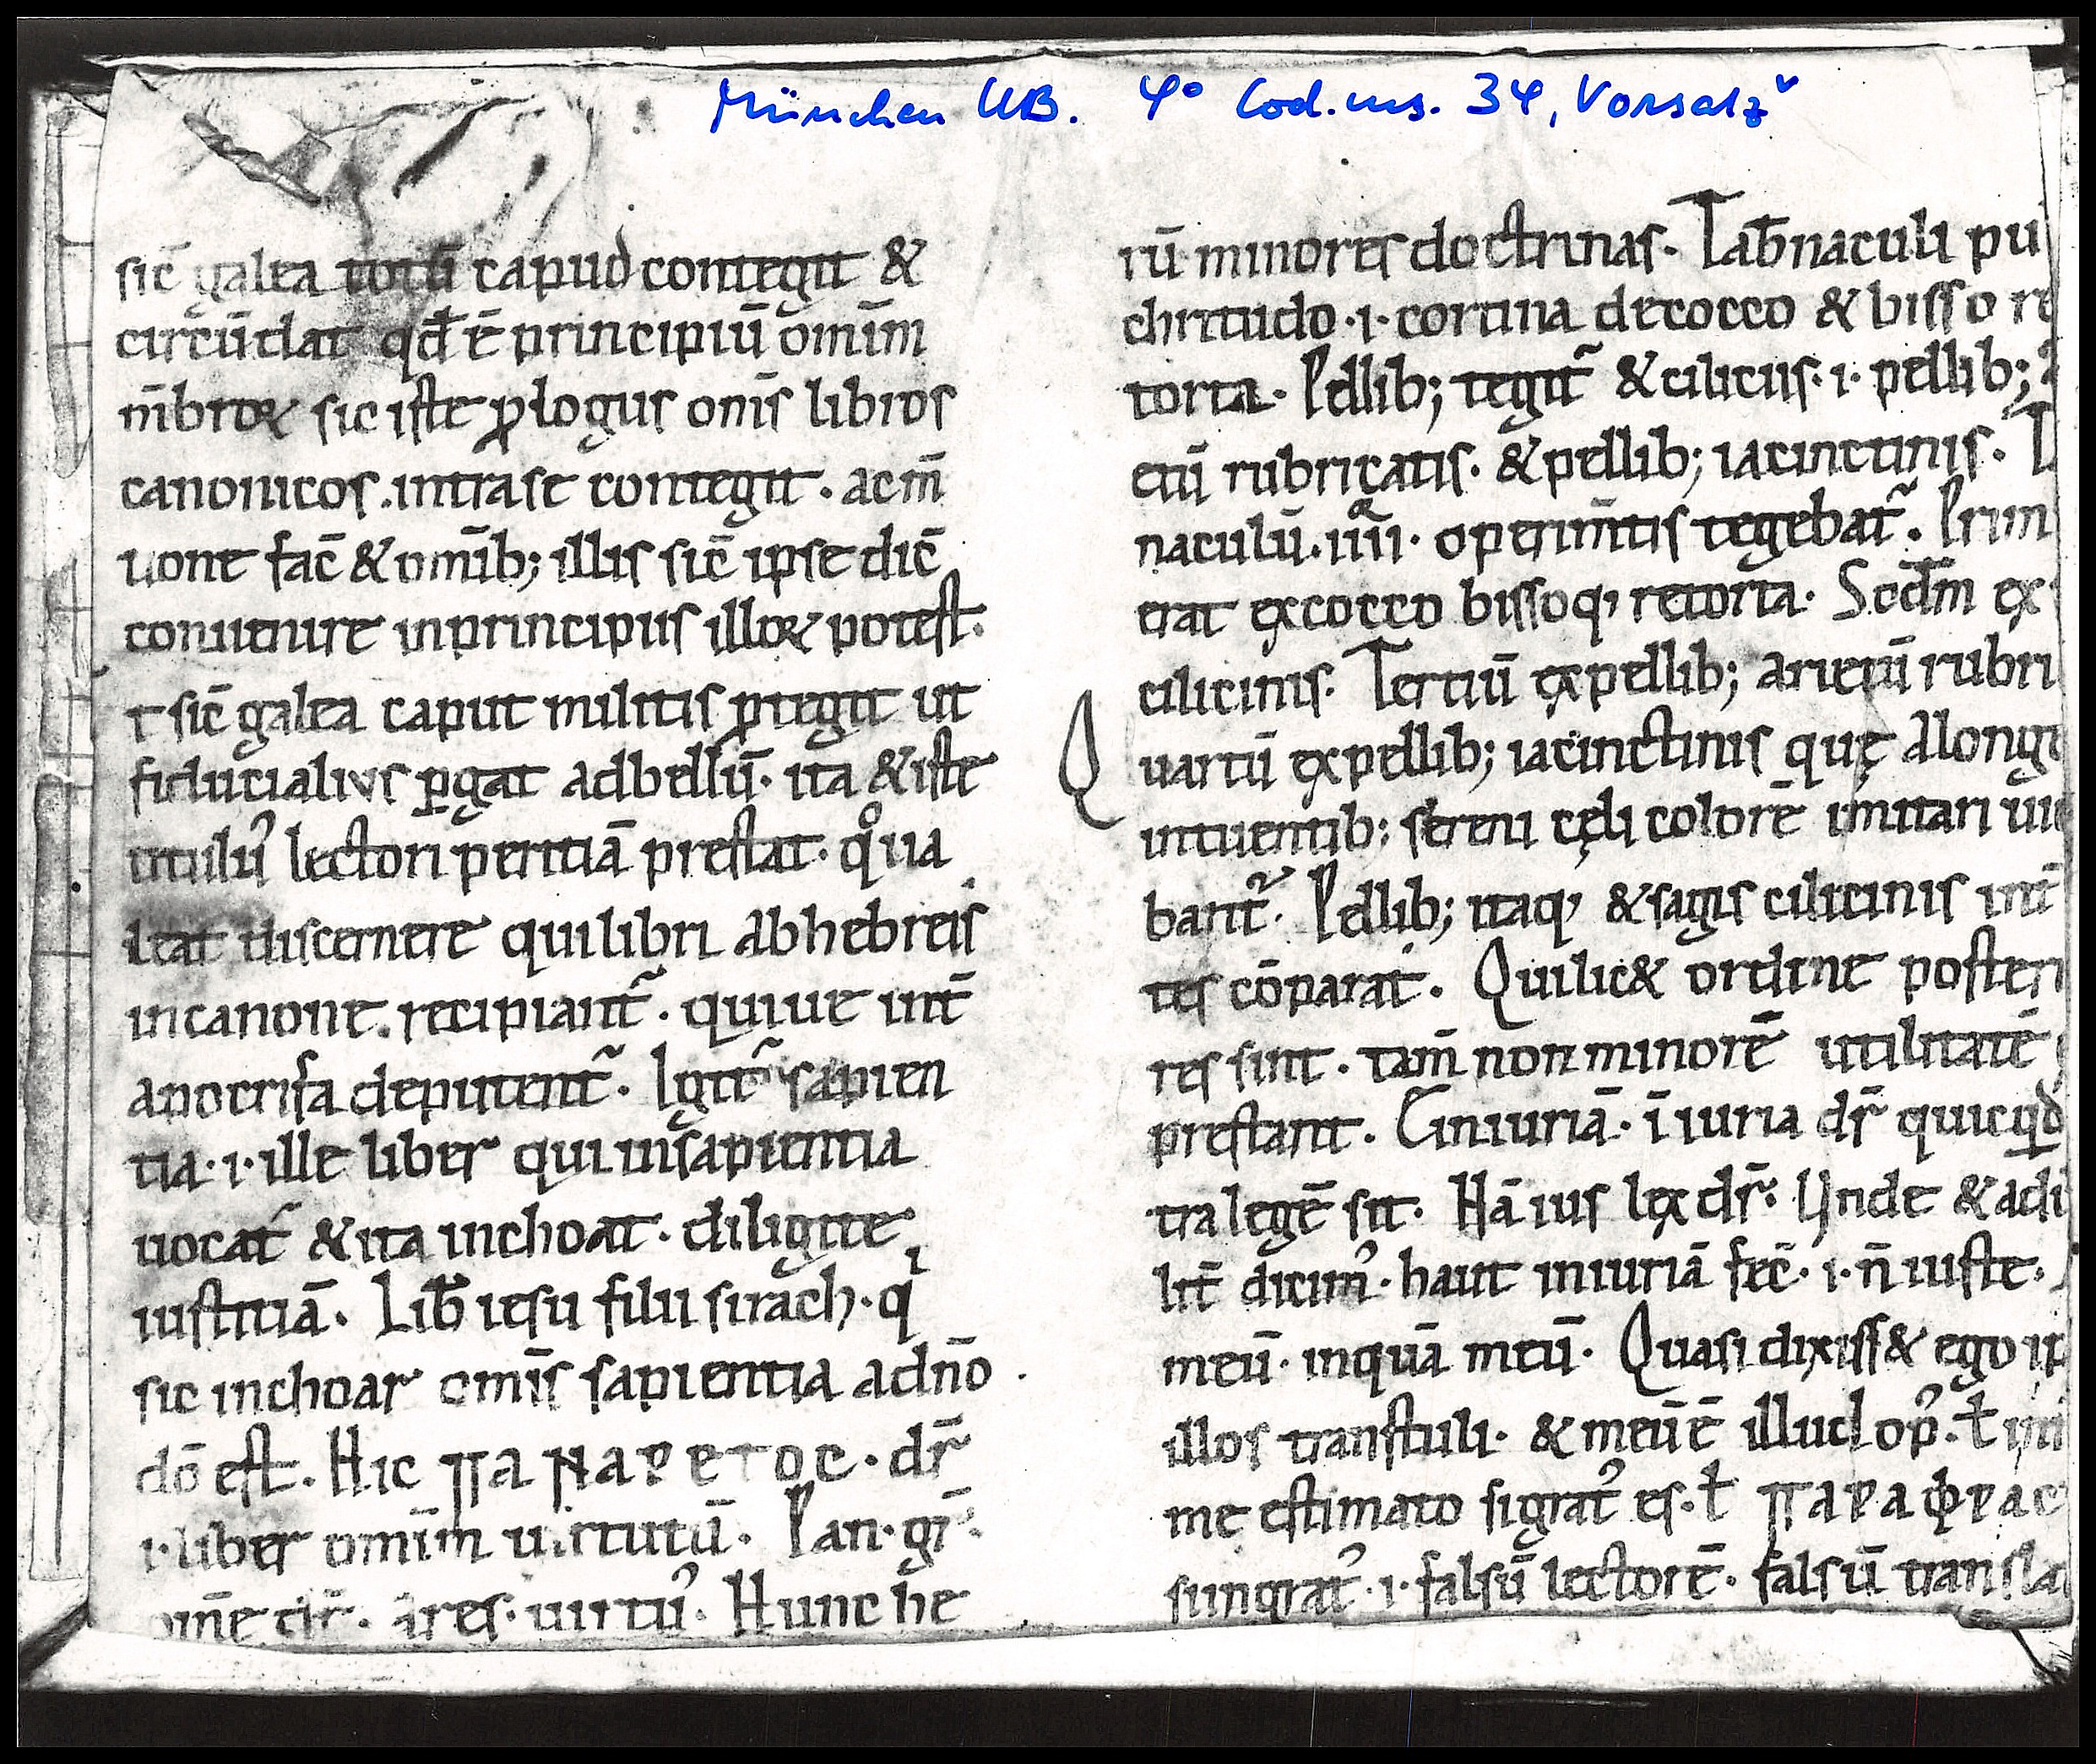 München UB. 4° Cod. ms. 34, Vorsatzᵛ
sic̄ galea totū capud contegit &
circūdat qđ ē principiū omīm
m̄broꝝ sic iste ꝓlogus om̄s libros
canonicos. intrase contegit. acm̄
uone fac̄ & om̄ib; illis sic̄ ipse dic̄
conuenire inprincipiis illoꝝ potest.
t sic̄ galea caput militis ꝓtegit ut
fiducialius ꝑgat adbellū. ita & iste
titulꝰ lectori peritiā prestat. qͦ ua
leat discernere qui libri abhebreis
incanone. recipiant᷑. quiue int̄
apocrifa deputent᷑. Igit᷑ sapien
tia .i. ille liber qui insapientia
uocat᷑ & ita inchoat. diligite
iustitiā. Lib̄ iesu filii sirach. qⁱ
sic inchoat om̄is sapientia adn̄o
dō est. Hic παναρετος. dr̄
.i. liber omīm uirtutū. Pan. gr̄.
om̄e dr̄. ares. uirtuꝰ. Hunc he
rū minores doctrinas. Tab̄naculi pu
chritudo .i. cortina decocco & bisso re
torta. Pellib; tegit᷑ & ciliciis .i. pellib;
etū rubricatis. & pellib; iacinctinis. T
naculū. iiii. operim̄tis tegebat᷑. Prim
erat excocco bissoq, retorta. Scd̄m ex
cilicinis. Tertiū expellib; arietū rubri
Quartū expellib; iacinctinis quę alonge
intuentib; sereni cęli colorē imitari ui
bant᷑. Pellib; itaq, & sagis cilicinis int̄
tes cōparat᷑. Quilic& ordine posteri
res sint. tam̄ non minorē utilitatē
prestant. Ciniuriā. īiuria dr̄ quicqd
tra legē sit. Nā ius lex dr̄. Unde & adi
lit̄ dicimꝰ. haut iniuriā fec̄ .i. n̄ iuste.
meū. inquā meū. Quasi dixiss& ego ip
illos transtuli. & meū ē illud opꝰ. ł
me estimato si gratꝰ es. ł παραφρας
sungratꝰ .i. falsū lectorē. falsū transla